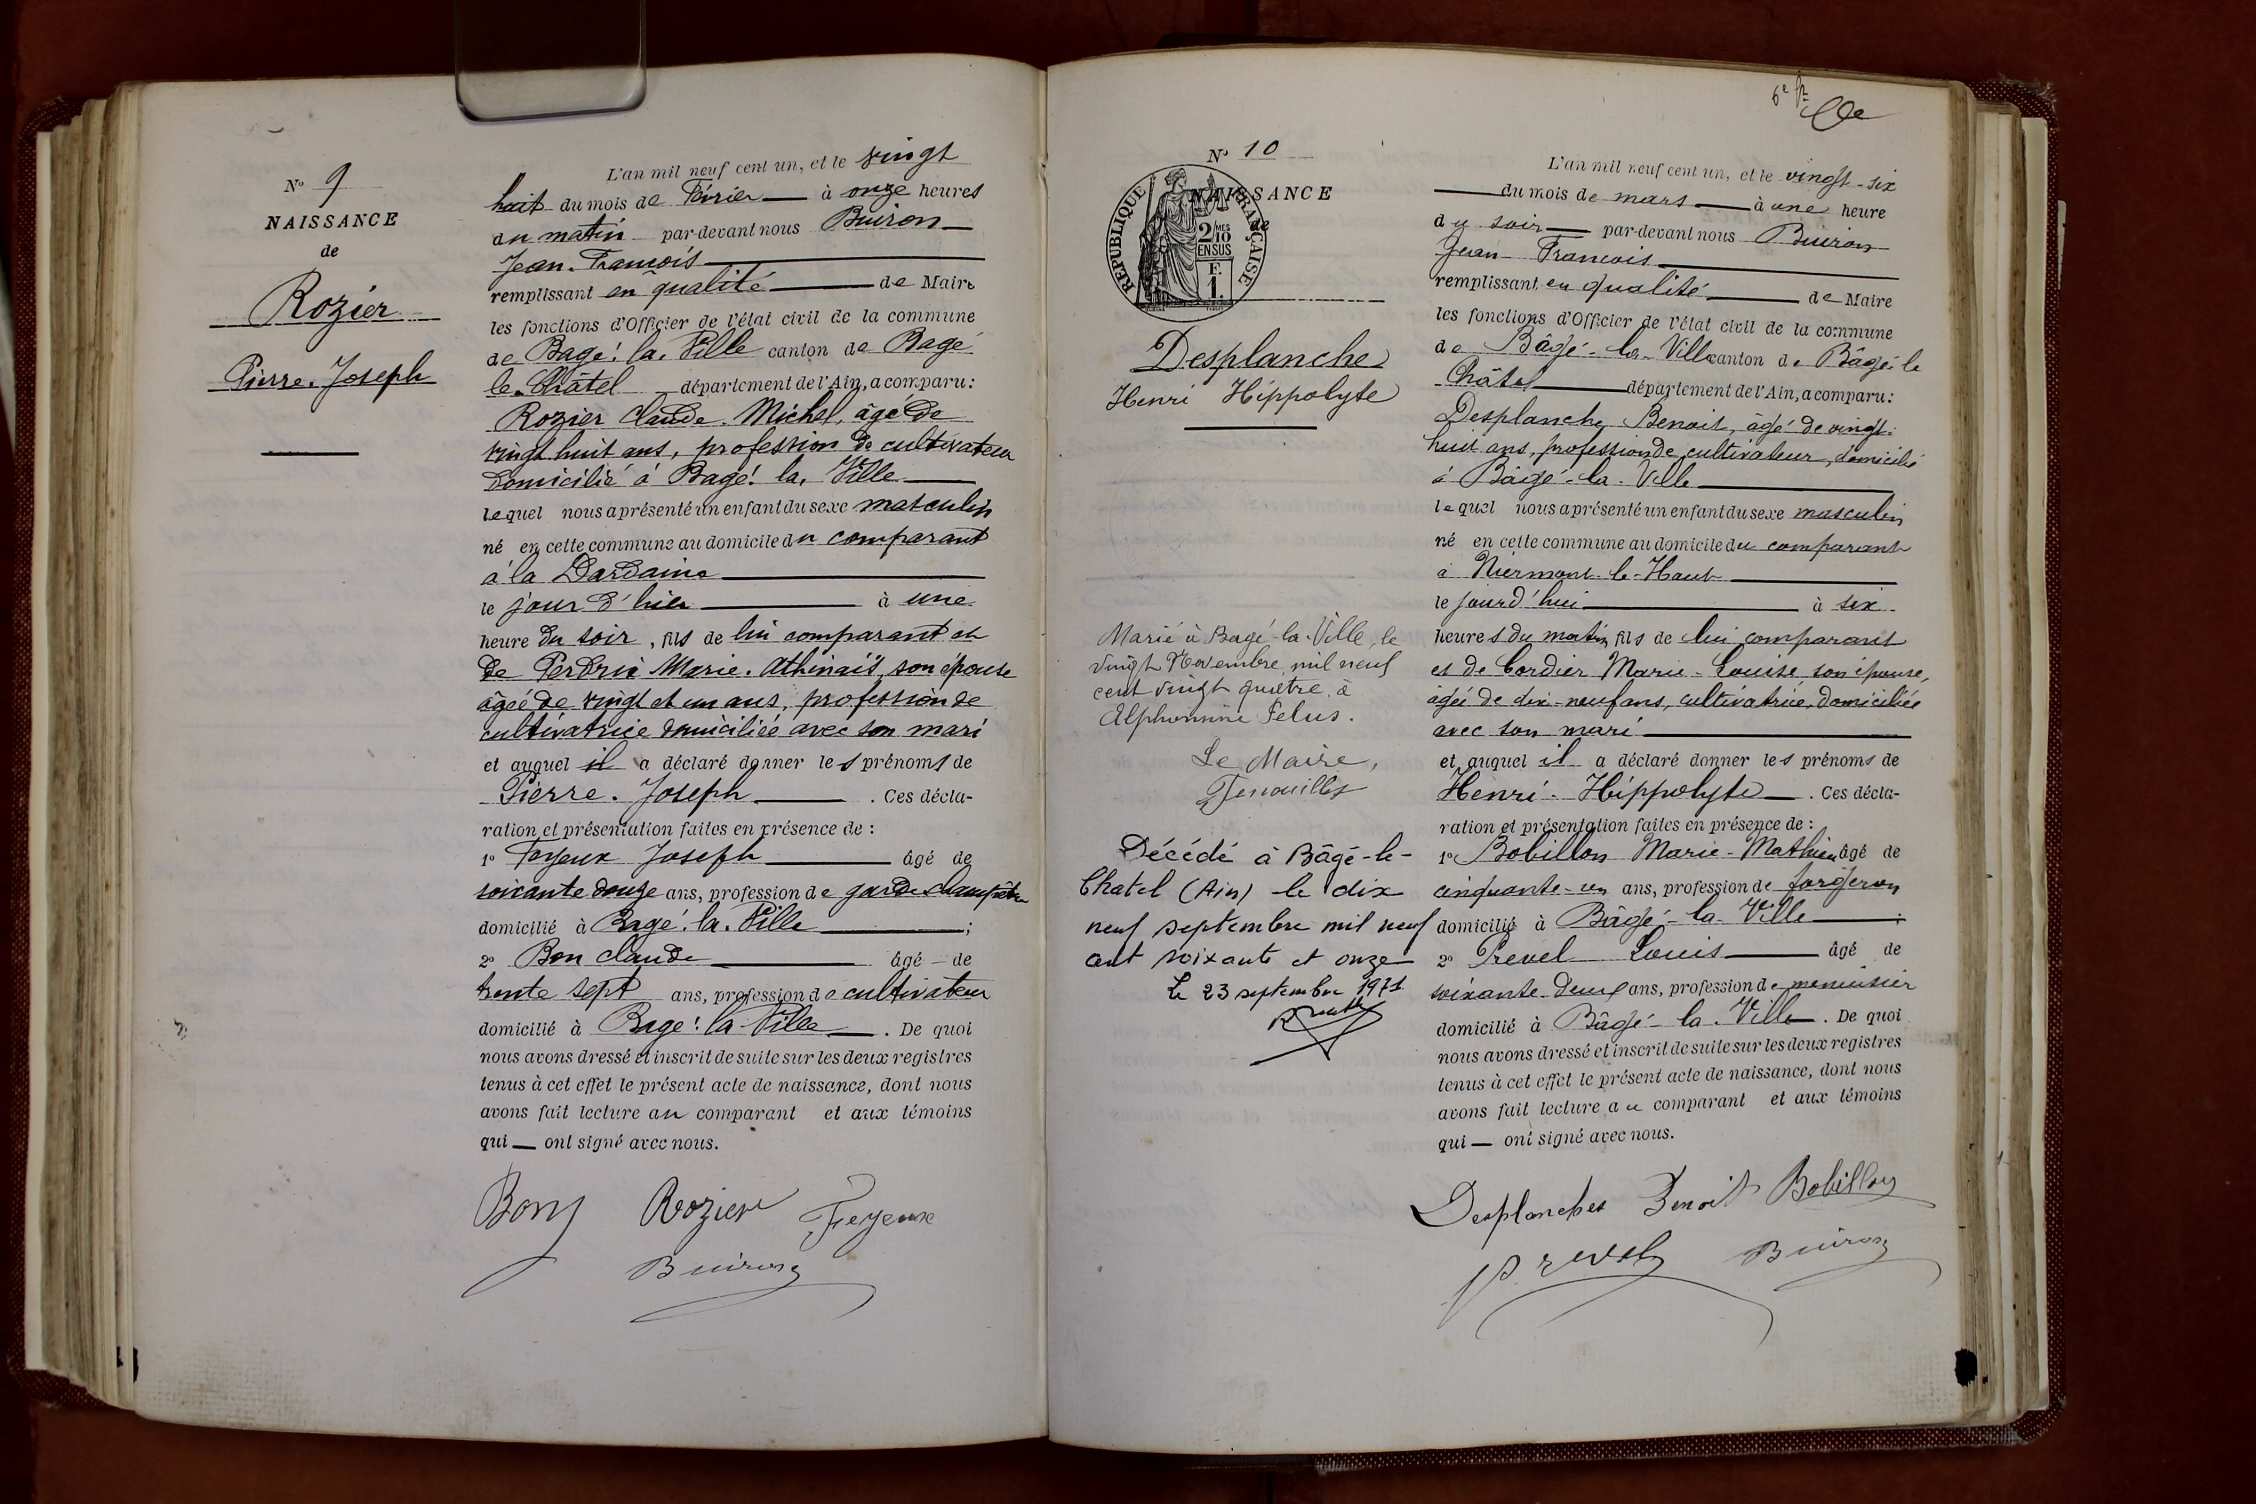 N° 9
NAISSANCE
de
Rozier
Pierre. Joseph
L'an mil neuf cent un, et le vingt
huit du mois de Février à onze heures
du matin par-devant nous Buiron
Jean. François
remplissant en qualité de Maire
les fonctions d'Officier de l'état civil de la commune
de Bagé. la. Ville canton de Bagé
le. Châtel département de l'Ain, a comparu:
Rozier Claude. Michel, âgé de
vingt huit ans, profession de cultivateur
domicilié à Bagé. la. Ville
lequel nous a présenté un enfant du sexe masculin
né en cette commune au domicile du comparant
à la Dardaine
le jour d'hier à une
heure du soir, fils de lui comparant et
de Perdrix Marie. Athénaïs, son épouse
âgée de vingt et un ans, profession de
cultivatrice domiciliée avec son mari
et auquel il a déclaré donner les prénoms de
Pierre. Joseph. Ces décla-
ration et présentation faites en présence de :
1° Foyeux Joseph âgé de
soixante douze ans, profession de garde champêtre
domicilié à Bagé. la. Ville ;
2° Bon Claude âgé de
trente sept ans, profession de cultivateur
domicilié à Bagé. la Ville. De quoi
nous avons dressé et inscrit de suite sur les deux registres
tenus à cet effet le présent acte de naissance, dont nous
avons fait lecture au comparant et aux témoins
qui ont signé avec nous.
Bon Rozier Feyeux
Buiron
6e
N° 10
NAISSANCE
de
REPUBLIQUE FRANÇAISE
2/10 MES
EN SUS
F.
1.
Desplanche
Henri Hippolyte
Marié à Bagé-la-Ville, le
vingt Novembre mil neuf
cent vingt quatre à
Alphonsine Felus.
Le Maire,
Décédé à Bâgé-le-
Chatel (Ain) le dix
neuf septembre mil neuf
cent soixante et onze
Le 23 septembre 1971
L'an mil neuf cent un, et le vingt-six
du mois de mars à une heure
du soir par-devant nous Buiron
Jean-François
remplissant en qualité de Maire
les fonctions d'Officier de l'état civil de la commune
de Bâgé-la-Ville canton de Bâgé-le
Châtel département de l'Ain, a comparu:
Desplanche Benoit, âgé de vingt-
huit ans, profession de cultivateur, domicilié
à Bâgé-la-Ville
lequel nous a présenté un enfant du sexe masculin
né en cette commune au domicile du comparant
à Niermont-le-Haut
le jourd'hui à six
heures du matin, fils de lui comparant
et de Cordier Marie-Louise son épouse,
âgée de dix-neuf ans, cultivatrice, domiciliée
avec son mari
et auquel il a déclaré donner les prénoms de
Henri-Hippolyte. Ces décla-
ration et présentation faites en présence de :
1° Bobillon Marie-Mathieu âgé de
cinquante-un ans, profession de forgeron
domicilié à Bâgé-la-Ville ;
2° Prevel Louis âgé de
soixante-deux ans, profession de menuisier
domicilié à Bâgé-la-Ville. De quoi
nous avons dressé et inscrit de suite sur les deux registres
tenus à cet effet le présent acte de naissance, dont nous
avons fait lecture au comparant et aux témoins
qui ont signé avec nous.
Desplanches Benoit Bobillon
Prevel Buiron